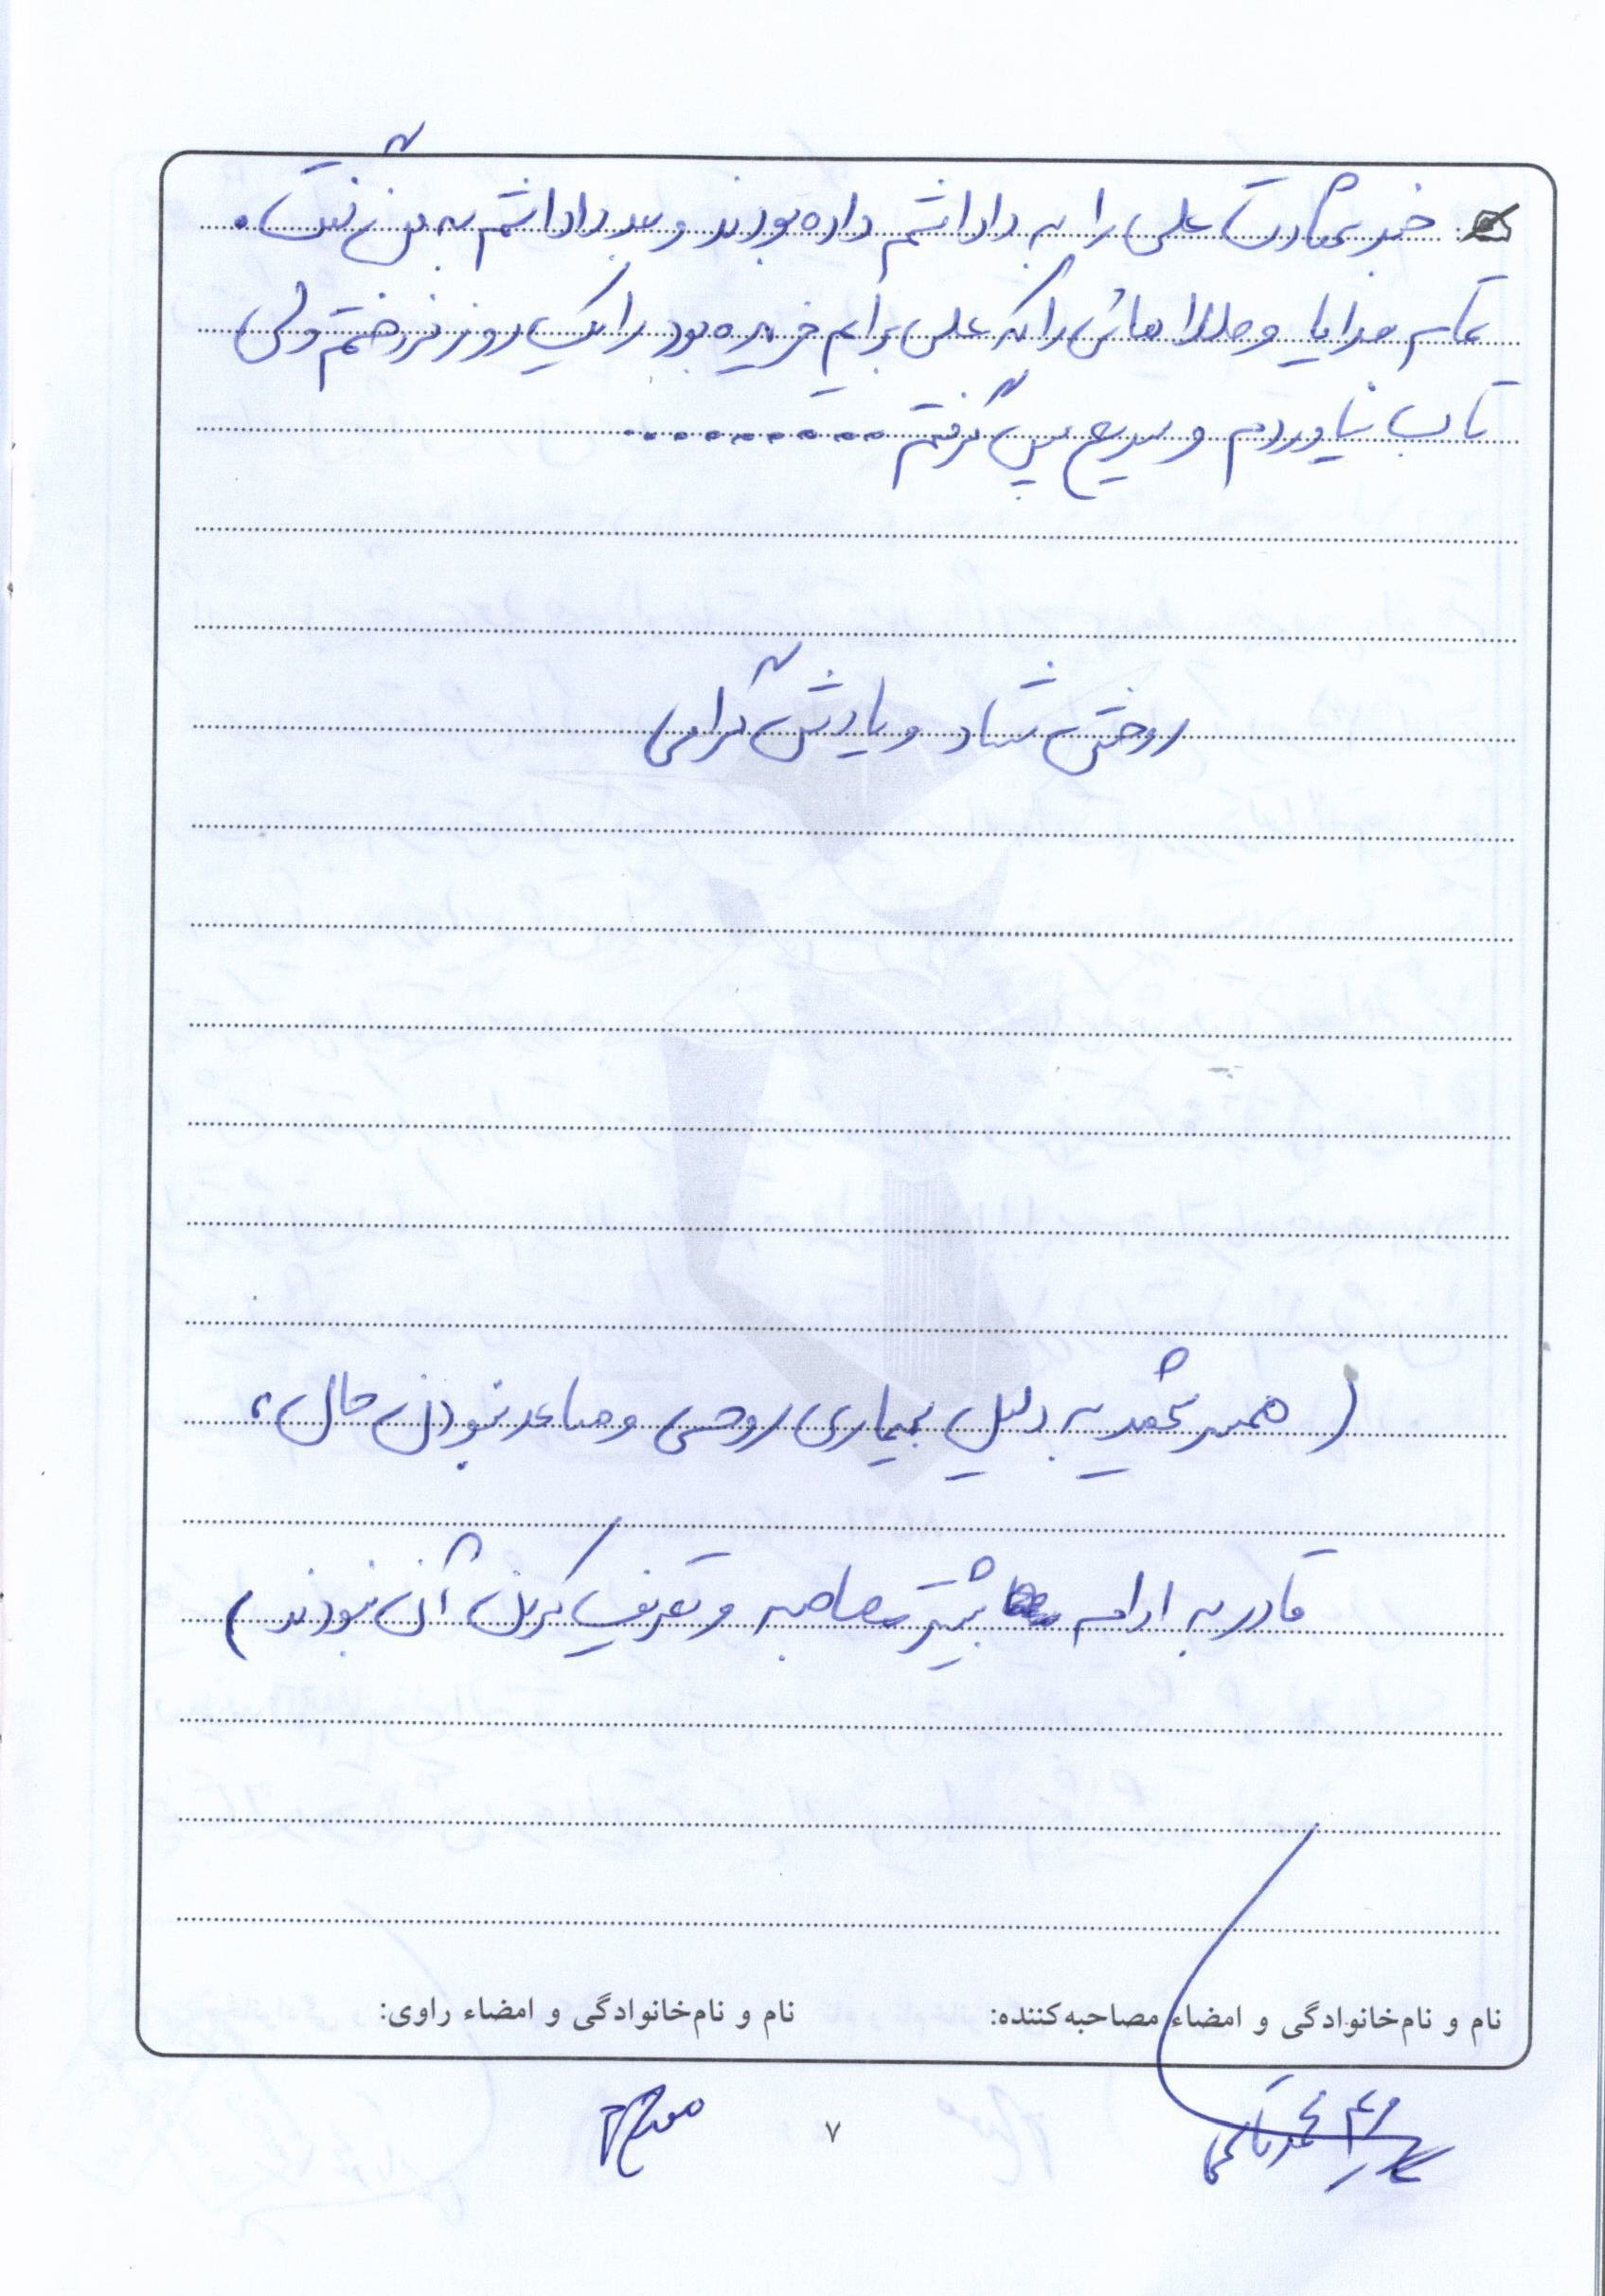 خبر شهادت علی را به داداشم داده بودند و بعد داداشم به من گفت.
تمام هدایا و طلاهائی را که علی برایم خریده بود را یک روز فروختم ولی
تاب نیاوردم و سریع پس گرفتم .........
روحش شاد و یادش گرامی
( همسر شهید به دلیل بیماری روحی و مساعد نبودن حال،
قادر به ادامه بیشتر مصاحبه و تعریف کردن آن نبودند )
نام و نام‌خانوادگی و امضاء مصاحبه‌کننده: نام و نام‌خانوادگی و امضاء راوی:
۷